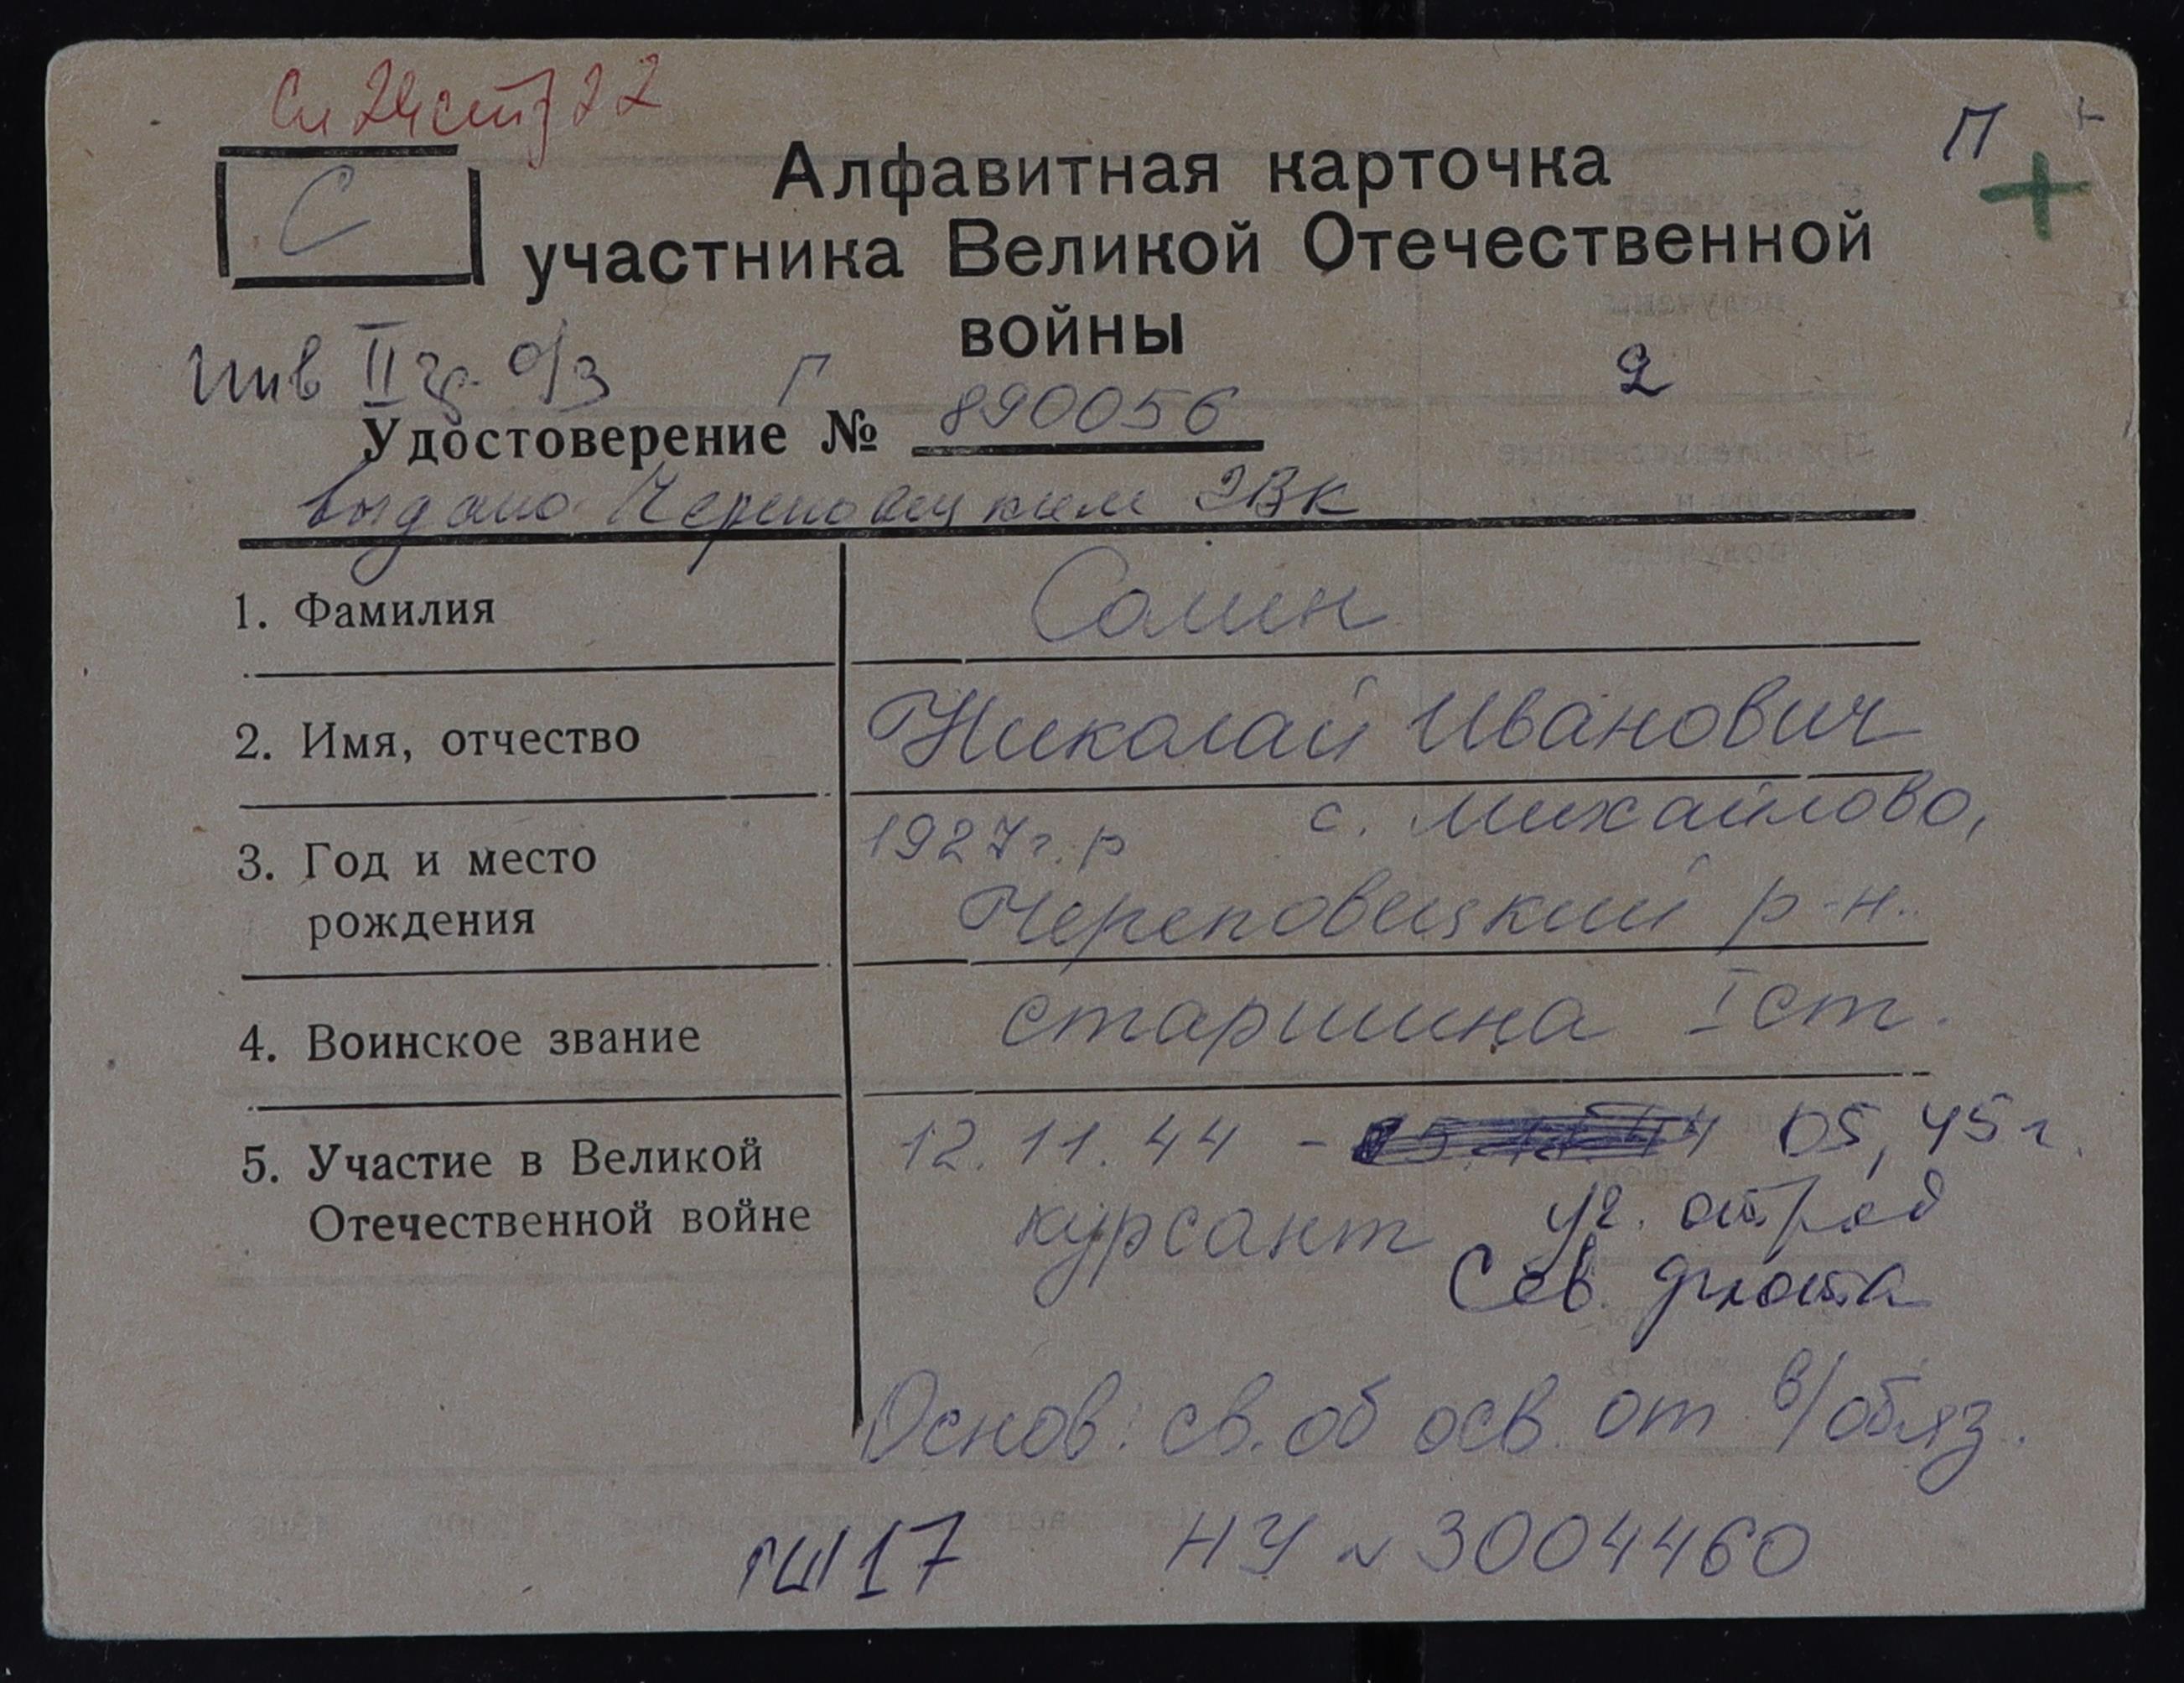 С
П
Алфавитная карточка
участника Великой Отечественной
войны
инв II гр. о/з Г 2
Удостоверение № 890056
выдано Череповецким ГВК
1. Фамилия
Солин
2. Имя, отчество
Николай Иванович
3. Год и место
рождения
1927 г. р с. Михайлово,
Череповецкий р-н.
4. Воинское звание
старшина I ст.
5. Участие в Великой
Отечественной войне
12.11.44 - 05,45 г.
курсант уч. отряд
Сев. флота
Основ: св. об осв от в/обяз.
17 НУ № 3004460